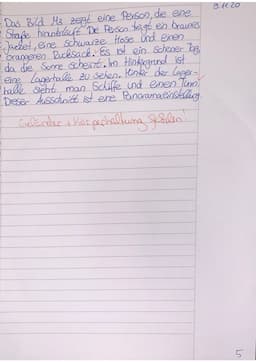 3.11.20
Das Bild M3 zeigt eine Person, die eine
Straße herabläuft. Die Person trägt ein braunes
Jacket, eine schwarze Hose und einen
orangenen Rucksack. Es ist ein schöner Tag,
da die Sonne scheint. Im Hintergrund ist
eine Lagerhalle zu sehen. Hinter der Lager-
halle sieht man Schiffe und einen Turm.
Dieser Ausschnitt ist eine Panoramaeinstellung.
+ Körperhaltung
5